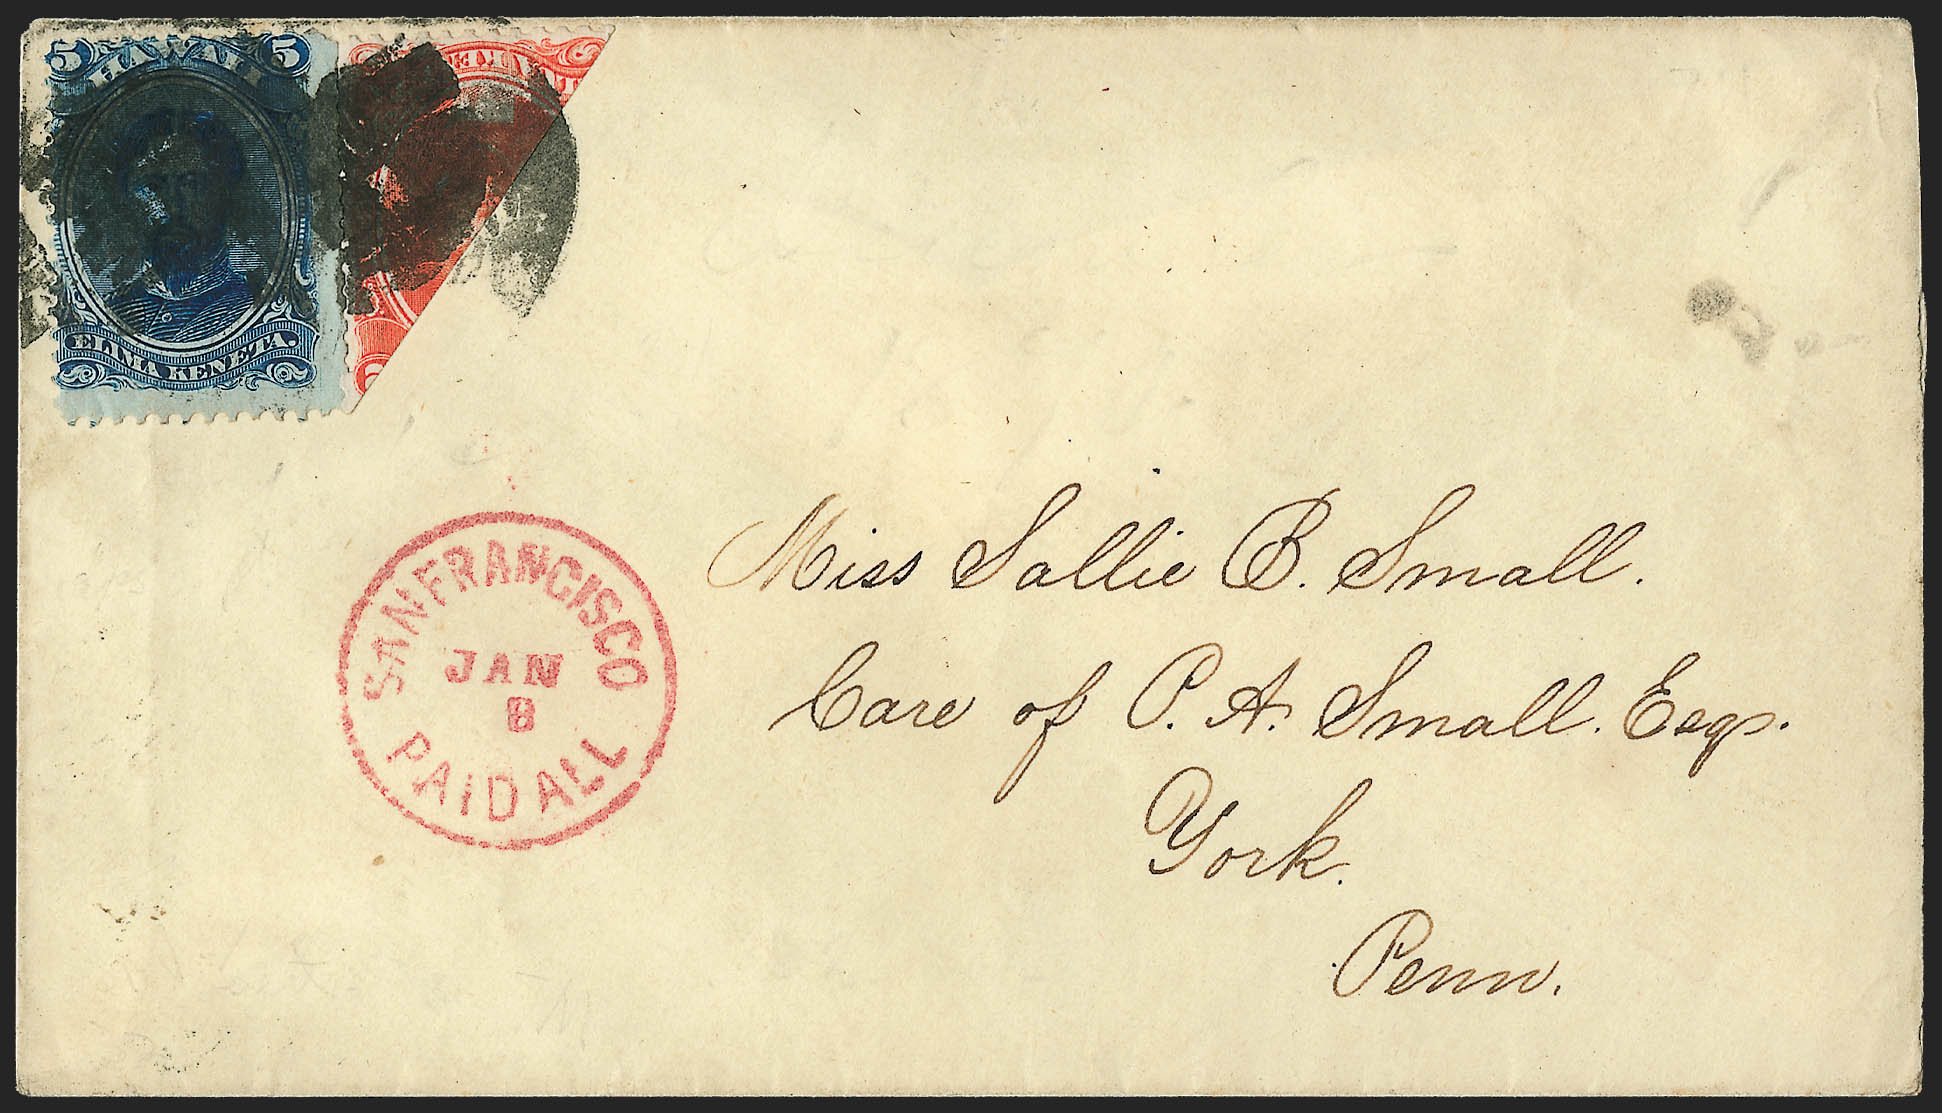 5 HAWAII 5
ELIMA KENETA.
SAN FRANCISCO
JAN
8
PAID ALL
Miss Sallie B. Small.
Care of P. A. Small. Esqr.
York.
Penn.